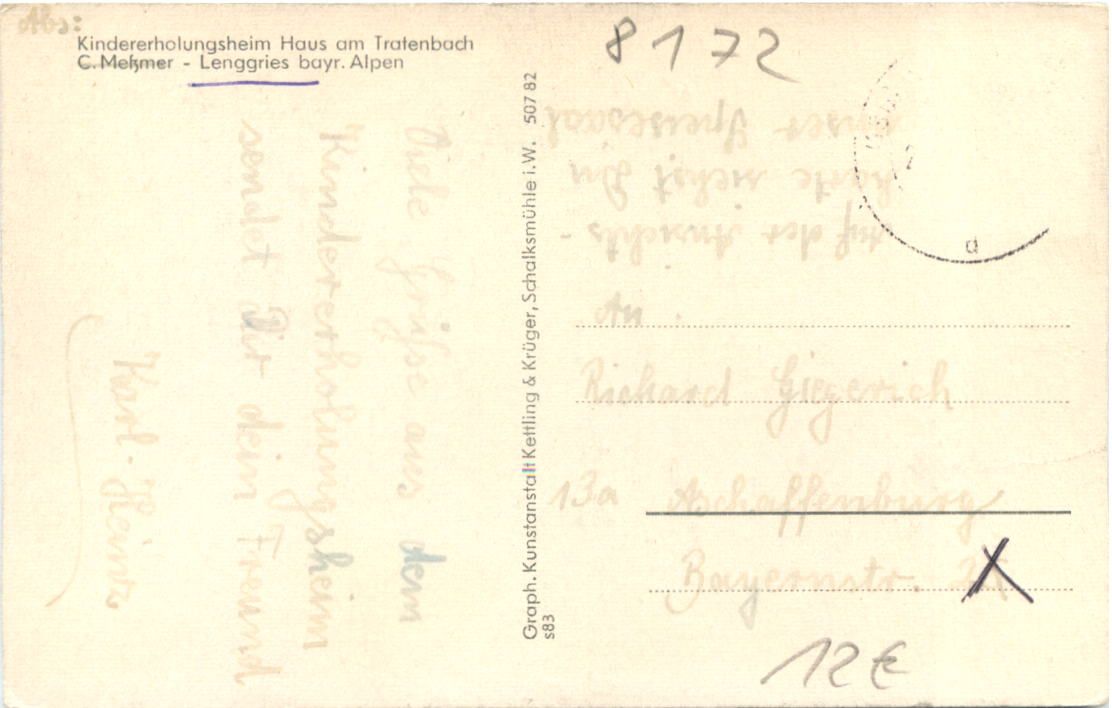 Abs:
Kindererholungsheim Haus am Tratenbach
C. Meßmer - Lenggries bayr. Alpen
Viele Grüße aus dem
Kindererholungsheim
sendet Dir dein Freund
Karl-Heinz
Graph. Kunstanstalt Kettling & Krüger, Schalksmühle i.W. 507 82
s83
8172
Auf der Ansichts-
karte siehst Du
unser Speisesaal
d
An
Richard Giegerich
13a Aschaffenburg
Bayernstr.
12€